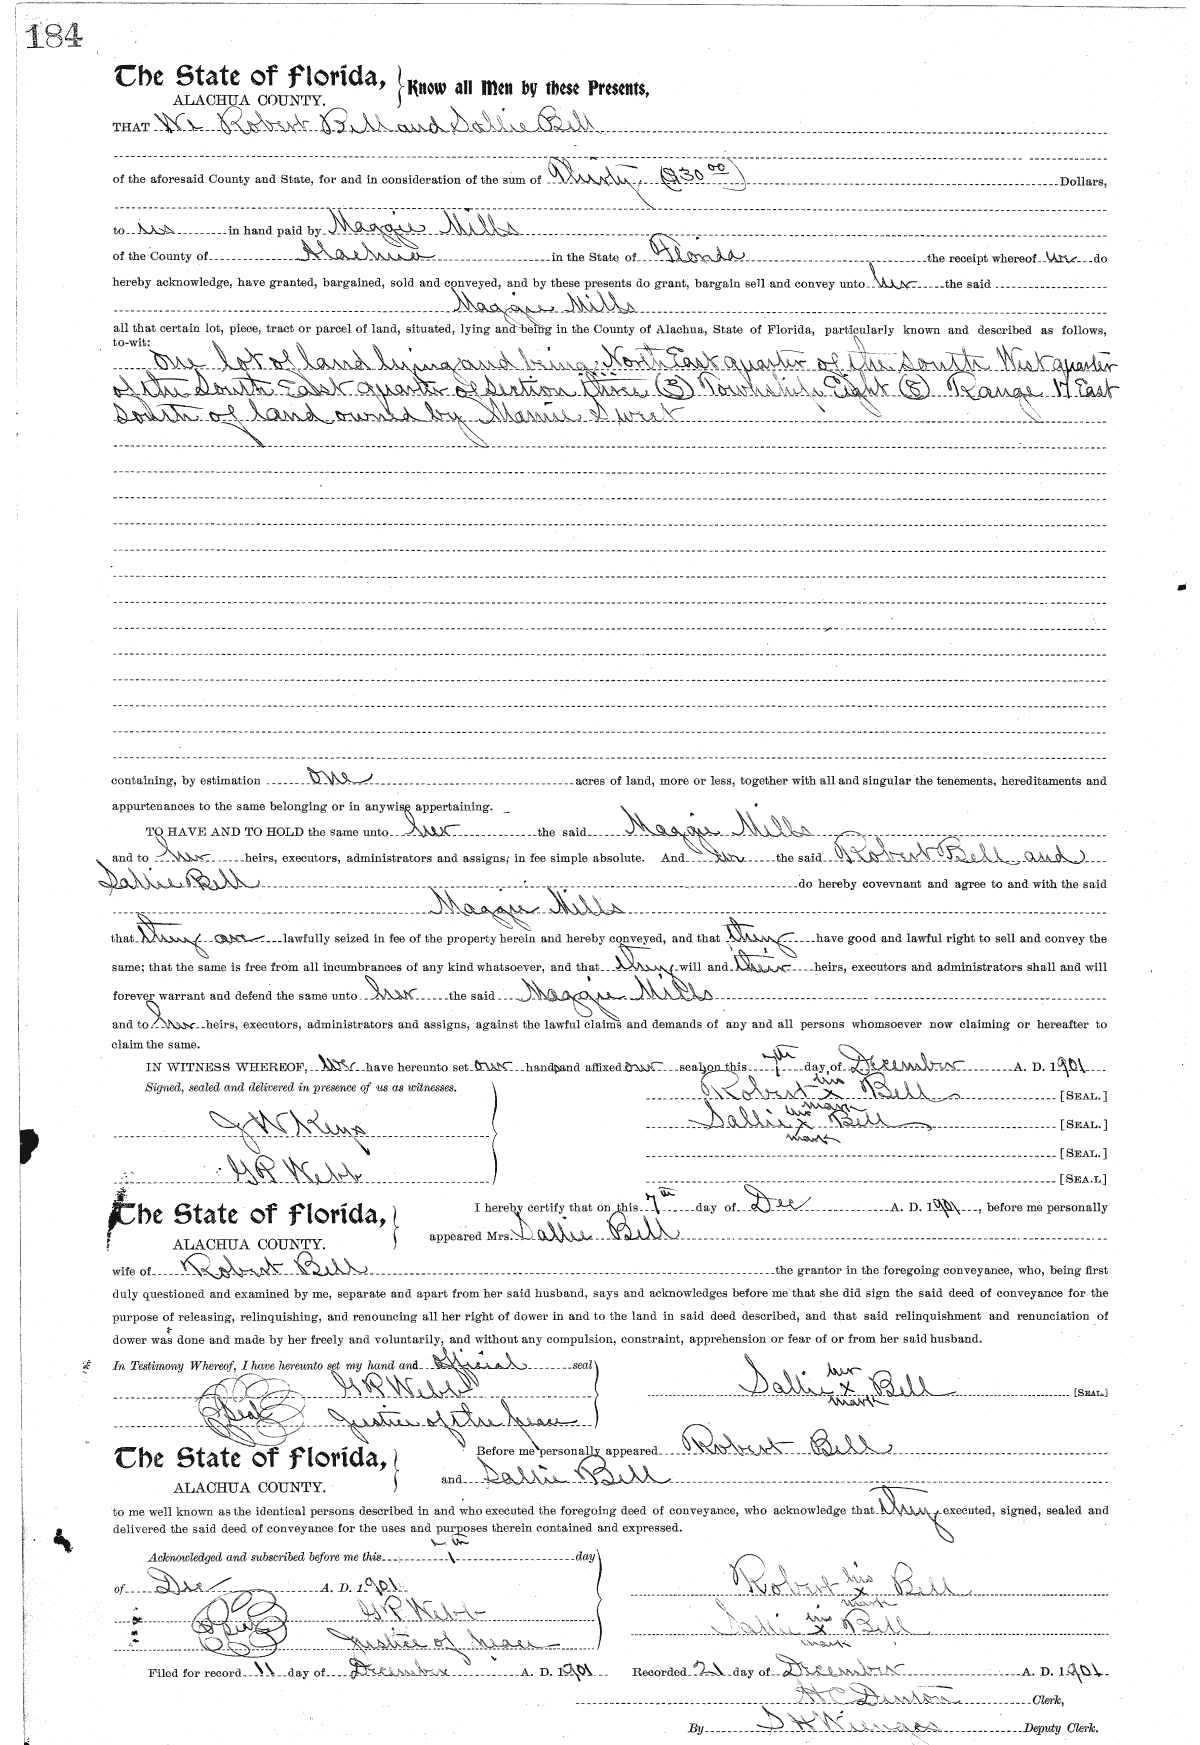 184
The State of Florida, Know all Men by these Presents,
ALACHUA COUNTY.
THAT We Robert Bell and Sallie Bell
of the aforesaid County and State, for and in consideration of the sum of Thirty ($30 00) Dollars,
to us in hand paid by Maggie Mills
of the County of Alachua in the State of Florida the receipt whereof we do
hereby acknowledge, have granted, bargained, sold and conveyed, and by these presents do grant, bargain sell and convey unto her the said
Maggie Mills
all that certain lot, piece, tract or parcel of land, situated, lying and being in the County of Alachua, State of Florida, particularly known and described as follows,
to-wit:
One lot of land lying and being North East quarter of the South West quarter
of the South East quarter of Section three (3) Township Eight (8) Range 17 East
South of land owned by Mamie Sweet
containing, by estimation one acres of land, more or less, together with all and singular the tenements, hereditaments and
appurtenances to the same belonging or in anywise appertaining.
TO HAVE AND TO HOLD the same unto her the said Maggie Mills
and to her heirs, executors, administrators and assigns, in fee simple absolute. And we the said Robert Bell and
Sallie Bell do hereby covevnant and agree to and with the said
Maggie Mills
that they are lawfully seized in fee of the property herein and hereby conveyed, and that they have good and lawful right to sell and convey the
same; that the same is free from all incumbrances of any kind whatsoever, and that they will and their heirs, executors and administrators shall and will
forever warrant and defend the same unto her the said Maggie Mills
and to her heirs, executors, administrators and assigns, against the lawful claims and demands of any and all persons whomsoever now claiming or hereafter to
claim the same.
IN WITNESS WHEREOF, we have hereunto set our hands and affixed our seals on this 7th day of December A. D. 1901
Signed, sealed and delivered in presence of us as witnesses.
Robert his x mark Bell [SEAL.]
J W Keys
Sallie her x mark Bell [SEAL.]
[SEAL.]
G R Webb
[SEA.L]
The State of Florida,
ALACHUA COUNTY.
I hereby certify that on this 7th day of Dec A. D. 1901, before me personally
appeared Mrs. Sallie Bell
wife of Robert Bell the grantor in the foregoing conveyance, who, being first
duly questioned and examined by me, separate and apart from her said husband, says and acknowledges before me that she did sign the said deed of conveyance for the
purpose of releasing, relinquishing, and renouncing all her right of dower in and to the land in said deed described, and that said relinquishment and renunciation of
dower was done and made by her freely and voluntarily, and without any compulsion, constraint, apprehension or fear of or from her said husband.
In Testimony Whereof, I have hereunto set my hand and official seal
G R Webb
Sallie her x mark Bell [SEAL]
Seal Justice of the peace
The State of Florida,
ALACHUA COUNTY.
Before me personally appeared Robert Bell
and Sallie Bell
to me well known as the identical persons described in and who executed the foregoing deed of conveyance, who acknowledge that they executed, signed, sealed and
delivered the said deed of conveyance for the uses and purposes therein contained and expressed.
Acknowledged and subscribed before me this 7th day
of Dec A. D. 1901
Robert his x mark Bell
G R Webb
Sallie her x mark Bell
Seal Justice of peace
Filed for record 11 day of December A. D. 1901 Recorded 21 day of December A. D. 1901
H C Denton Clerk,
By S H Wienges Deputy Clerk.